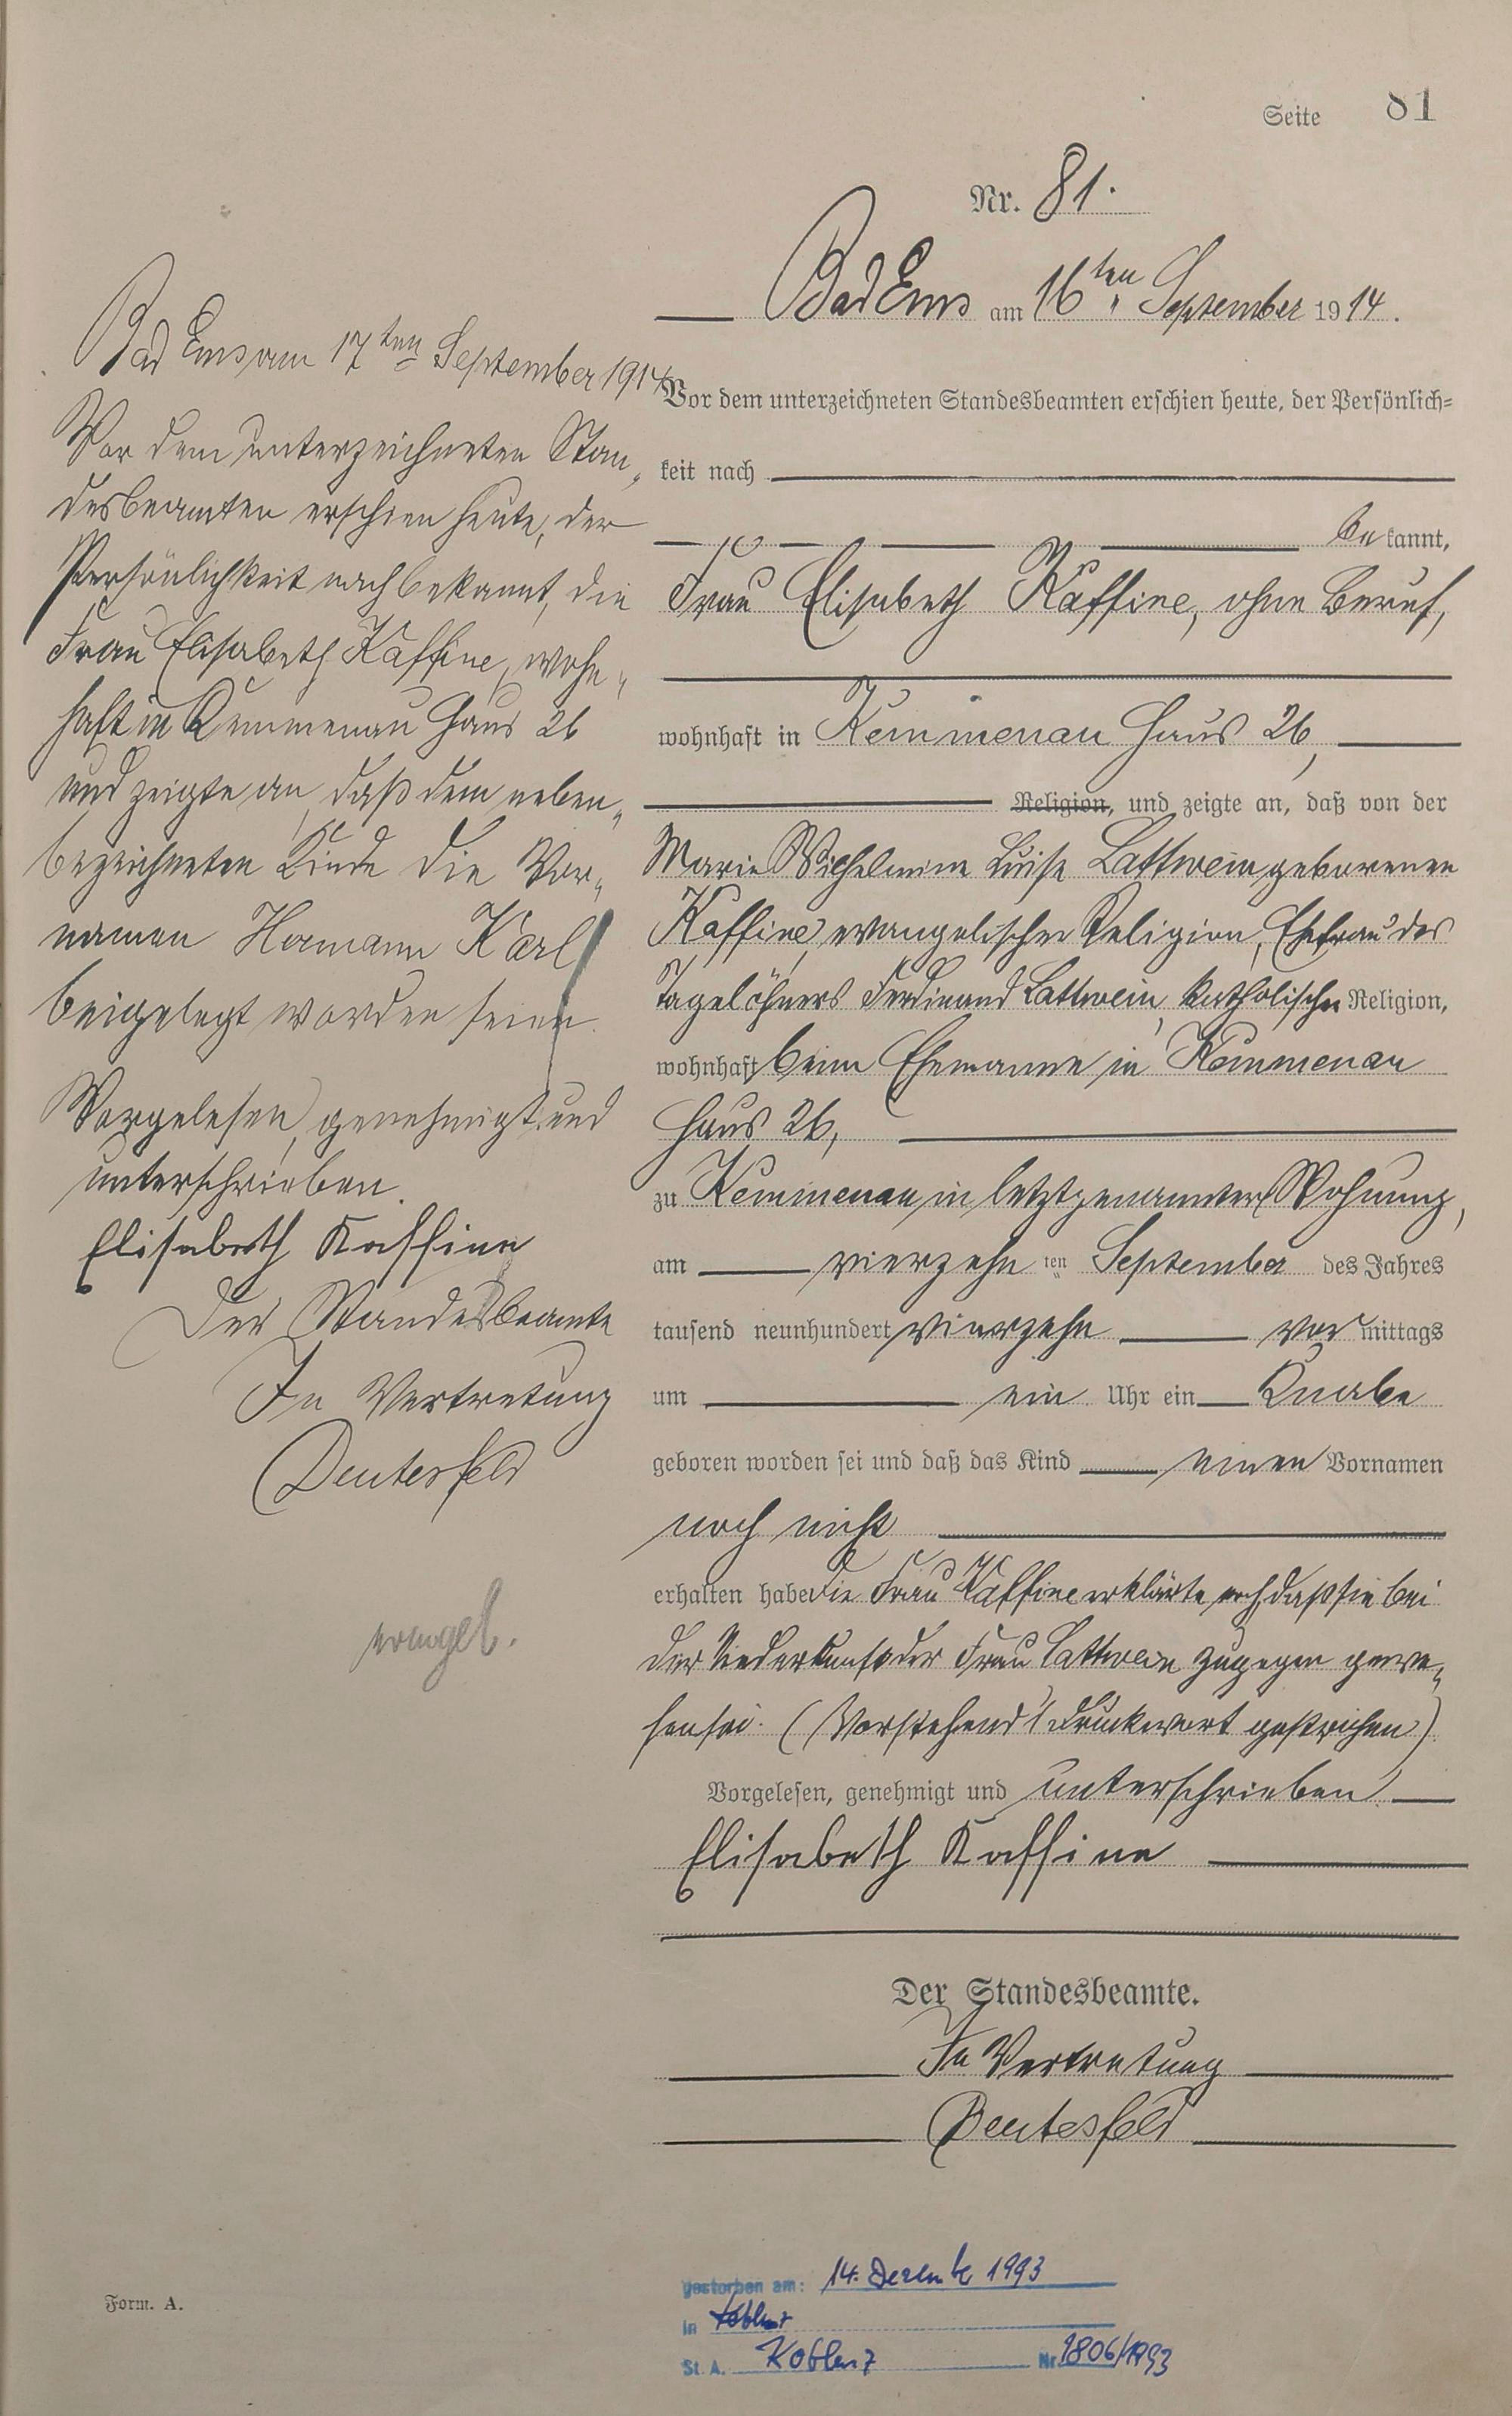 Seite 81
Nr. 81.
Bad Ems am 16ten September 1914.
Vor dem unterzeichneten Standesbeamten erschien heute, der Persönlich-
keit nach
be kannt,
Frau Elisabeth Kaffine, ohne Beruf,
wohnhaft in Kemmenau Haus 26,
Religion, und zeigte an, daß von der
Marie Wilhelmine Luise Lattwein geborenen
Kaffine, evangelischer Religion, Ehefrau des
Tagelöhners Ferdinand Lattwein, katholischer Religion,
wohnhaft beim Ehemanne in Kemmenau
Haus 26,
zu Kemmenau in letztgenannter Wohnung,
am vierzehn ten September des Jahres
tausend neunhundert vierzehn vor mittags
um ein Uhr ein Knabe
geboren worden sei und daß das Kind einen Vornamen
noch nicht
erhalten habe Die Frau Kaffine erklärte noch, daß sie bei
der Niederkunft der Frau Lattwein zugegen gewe-
sen sei. (Vorstehend 1 Druckwort gestrichen)
Vorgelesen, genehmigt und unterschrieben
Elisabeth Kaffine
Der Standesbeamte.
In Vertretung
Deutesfeld
Bad Ems am 17ten September 1914
Vor dem unterzeichneten Stan-
desbeamten erschien heute, der
Persönlichkeit nach bekannt, die
Frau Elisabeth Kaffine, wohn-
haft in Kemmenau Haus 26
und zeigte an, daß dem neben-
bezeichneten Kinde die Vor-
namen Hermann Karl
beigelegt worden seien.
Vorgelesen, genehmigt und
unterschrieben.
Elisabeth Kaffine
Der Standesbeamte
In Vertretung
Deutesfeld
evangel.
gestorben am: 14. Dezemb 1993
in Koblenz
St. A. Koblenz Nr. 1806/1993
Form. A.